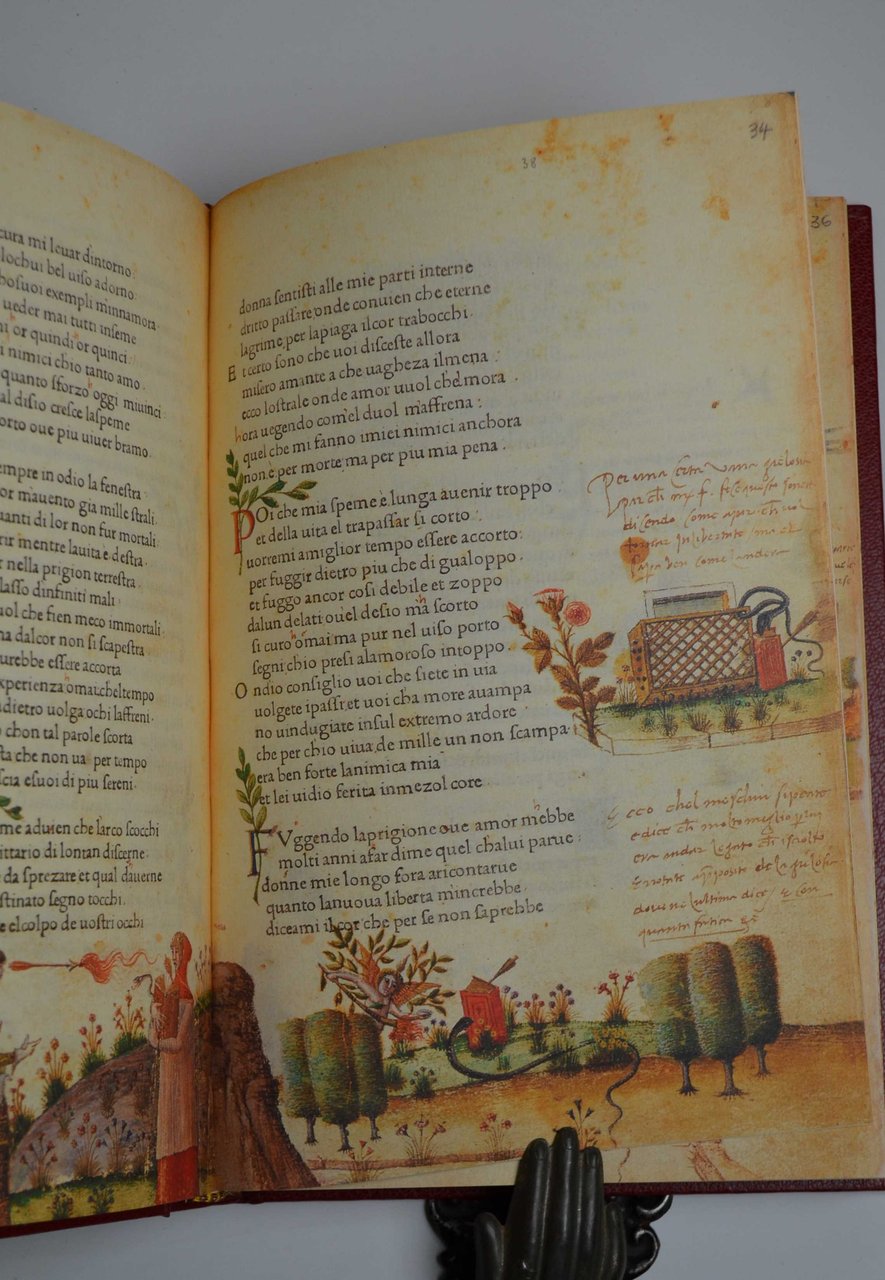 cura mi leuar dintorno
lochui bel uiso adorno:
bosuoi exempli minnamora
ueder mai tutti inseme
ni or quindi or quinci:
i nimici chio tanto amo.
quanto sforzo oggi miuinci
al disio cresce laspeme
orto oue piu uiuer bramo.
empre in odio la fenestra
or mauento gia mille strali
uanti di lor non fur mortali
rir mentre lauita e, destra
nella prigion terrestra
lasso dinfiniti mali:
uol che fien meco immortali
ma dalcor non si scapestra
urebbe essere accorta
xperienza omai cheltempo
dietro uolga ochi laffreni
chon tal parole scorta
sta che non ua per tempo
scia esuoi di piu sereni
me aduien che larco scocchi
ittario di lontan discerne
da sprezare et qual dauerne
stinato segno tocchi
e el colpo de uostri occhi
34
38
36
donna sentisti alle mie parti interne
dritto passare, onde conuien che eterne
lagrime, per lapiaga il cor trabocchi.
Et certo sono che uoi disceste allora
misero amante a che uagheza ilmena:
ecco lostrale onde amor uuol chel mora
hora uegendo com'el duol m'affrena:
quel che mi fanno imiei nimici anchora
non è per morte, ma per piu mia pena.
POi che mia speme è lunga auenir troppo
et della uita el trapassar si corto:
uorremi amiglior tempo essere accorto
per fuggir dietro piu che di gualoppo.
et fuggo ancor cosi debile et zoppo
dalun delati oue'l desio mha scorto
si curo homai ma pur nel uiso porto
segni chio presi alamoroso intoppo.
Ondio consiglio uoi che siete in uia
uolgete ipassi, et uoi cha more auampa
no uindugiate insul extremo ardore
che per chio uiua, de mille un non scampa
era ben forte lanimica mia
et lei uidio ferita inmezol core
FVggendo laprigione oue amor mhebbe
molti anni afar dime quel chalui parue:
donne mie longo fora aricontarue
quanto lanuoua liberta mincrebbe
diceami il cor che per se non saprebbe
Per una certa
disendo come
come
Ecco chel meschin si pente
e dice ch molto meglio
era andar legato
quanta fatica